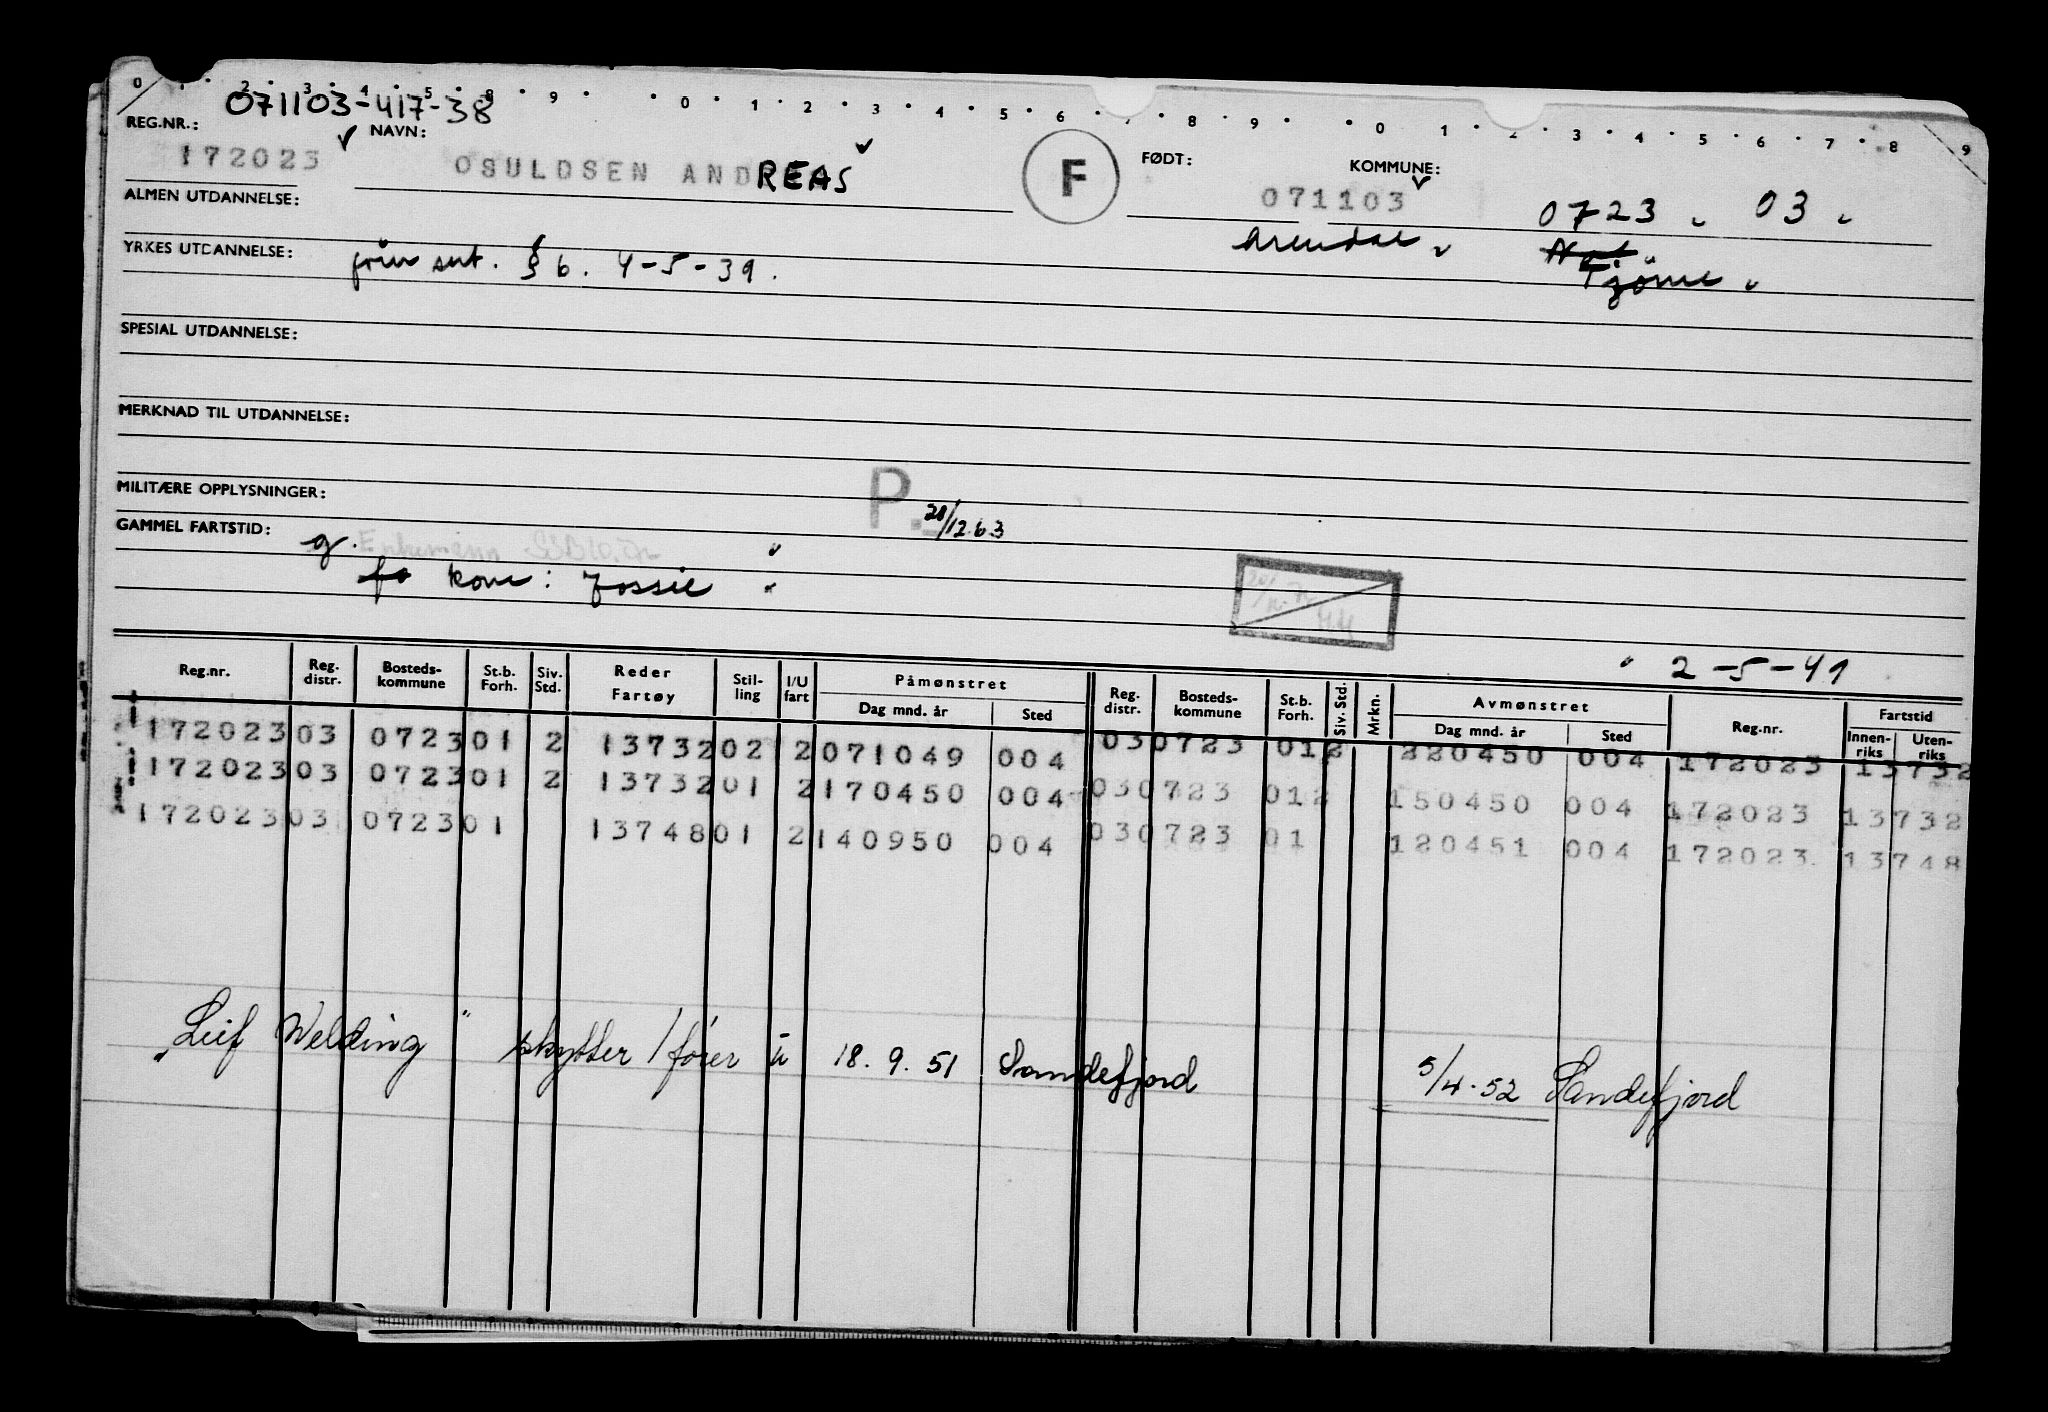 0 2 3 4 5 8 9 0 1 2 3 4 5 6 7 8 9 0 1 2 3 4 5 6 7 8 9
071103-417-38
REG.NR.: NAVN: FØDT: KOMMUNE:
172023 OSULDSEN ANDREAS F 071103 0723 03
ALMEN UTDANNELSE:
Arendal
YRKES UTDANNELSE: sert. § 6. 4-5-39. Tjöme
SPESIAL UTDANNELSE:
MERKNAD TIL UTDANNELSE:
MILITÆRE OPPLYSNINGER: P. 20/12.63
GAMMEL FARTSTID: g.
kone: Jossie
2-5-41
Reg.nr. Reg. distr. Bosteds-kommune St.b. Forh. Siv. Std. Reder Fartøy Stil-ling I/U fart Påmønstret Dag mnd. år Sted Reg. distr. Bosteds-kommune St.b. Forh. Siv. Std. Mrkn. Avmønstret Dag mnd. år Sted Reg.nr. Fartstid Innen-riks Uten-riks
172023 03 0723 01 2 13732 02 2 071049 004 03 0723 01 2 220450 004 172023 13732
172023 03 0723 01 2 13732 01 2 170450 004 03 0723 01 2 150450 004 172023 13732
172023 03 0723 01 13748 01 2 140950 004 03 0723 01 120451 004 172023 13748
"Leif Welding" skytter/fører u 18.9.51 Sandefjord 5/4-52 Sandefjord